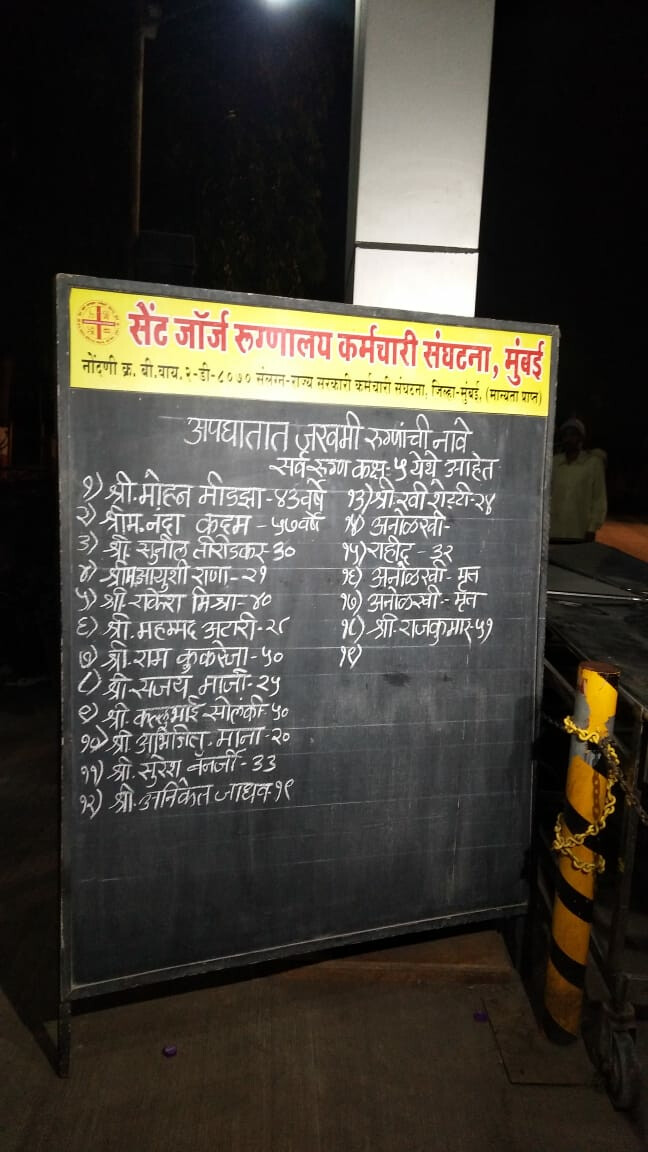 सेंट जॉर्ज रूग्णालय कर्मचारी संघटना, मुंबई
नोंदणी क्र. बी.वाय.२-डी-८०७० संलग्न-राज्य सरकारी कर्मचारी संघटना, जिल्हा-मुंबई, (मान्यता प्राप्त)
अपघातात जखमी रुग्णांची नावे
सर्व रुग्ण कक्ष-५ येथे आहेत
१) श्री. मोहन मोडझा-४३वर्षे
२) श्रीम. नंदा कदम - ५७वर्षे
३) श्री. सुनील तीरोडकर-३०
४) श्रीम. आयुशी राणा-२१
५) श्री. राकेश मिश्रा-४०
६) श्री. महम्मद अटारी-२८
७) श्री. राम कुकरेजा-५०
८) श्री. संजय माजी-२५
९) श्री. कल्लुभाई सोलंकी-५०
१०) श्री अभिजित. माना-२०
११) श्री. सुरेश बॅनर्जी-३३
१२) श्री. अनिकेत जाधव-१९
१३) श्री. रवी शेट्टी-२४
१४) अनोळखी-
१५) राहीद - ३२
१६) अनोळखी-मृत
१७) अनोळखी-मृत
१८) श्री. राजकुमार-५१
१९)